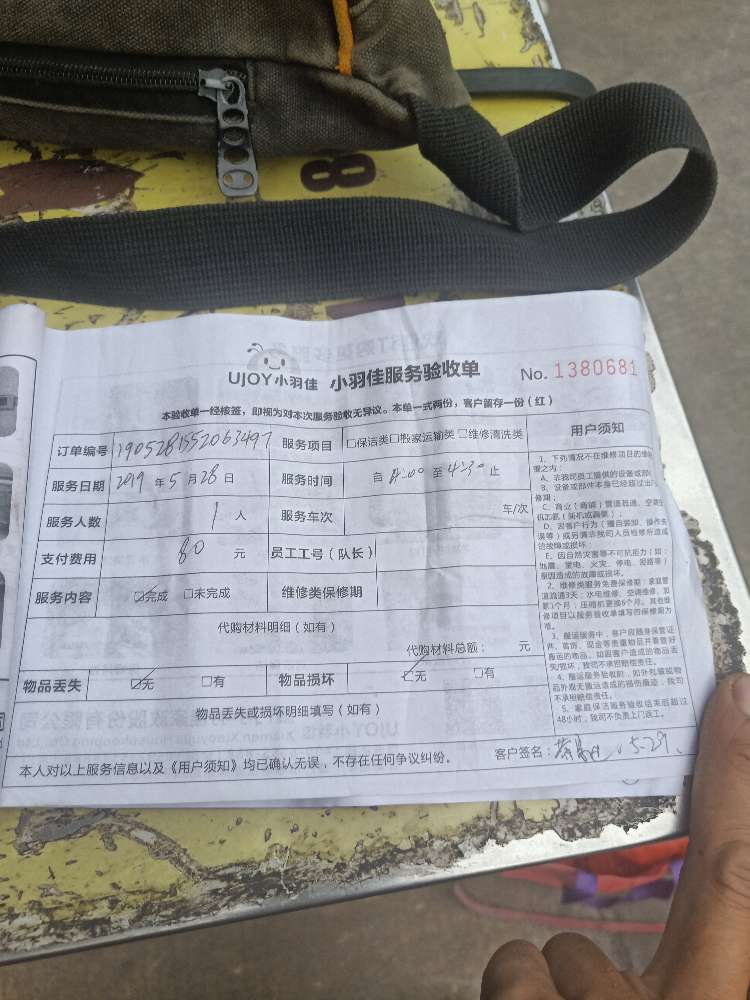 8
UJOY小羽佳 小羽佳服务验收单 No. 1380681
本验收单一经核签，即视为对本次服务验收无异议。本单一式两份，客户留存一份（红）
订单编号 1905281552063497 服务项目 □保洁类□搬家运输类□维修清洗类
服务日期 2019 年 5 月 28 日 服务时间 自 至 4:30 止
服务人数 1 人 服务车次 车/次
支付费用 80 元 员工工号（队长）
服务内容 ☑完成 □未完成 维修类保修期
代购材料明细（如有）
代购材料总额： 元
物品丢失 ☑无 □有 物品损坏 ☑无 □有
物品丢失或损坏明细填写（如有）
本人对以上服务信息以及《用户须知》均已确认无误，不存在任何争议纠纷。
客户签名： 5-29
用户须知
1、下列情况不在维修项目的
A、非我司员工提供的设备或部
B、设备或部件本身已经超过
修期；
E、因自然灾害等不可抗力（如：
地震、雷电、火灾、停电、
造成的故障或损坏。
2、维修类服务免费保修期：家庭管
道疏通3天；水电维修、空调维修、加
氨1个月；压缩机更换6个月。其他维
修项目以服务验收单填写的保修期为
准。
3、搬运服务中，客户应随身保管证
件、首饰、现金等贵重物品并看管好
搬运的物品，如因客户造成的物品丢
失/损坏，我司不承担赔偿责任。
4、搬运服务验收时，如外包装或物
品外观无搬运造成的损伤痕迹，我司
不承担赔偿责任。
5、家庭保洁服务验收结束后超过
48小时，我司不负责上门返工。